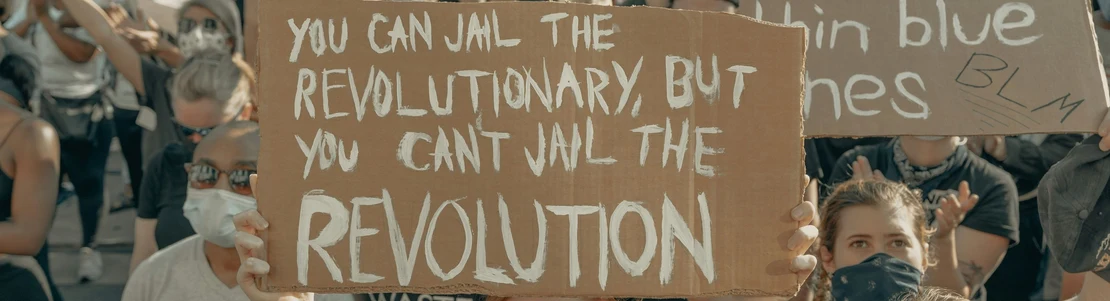 YOU CAN JAIL THE
REVOLUTIONARY, BUT
YOU CANT JAIL THE
REVOLUTION
thin blue
nes
BLM